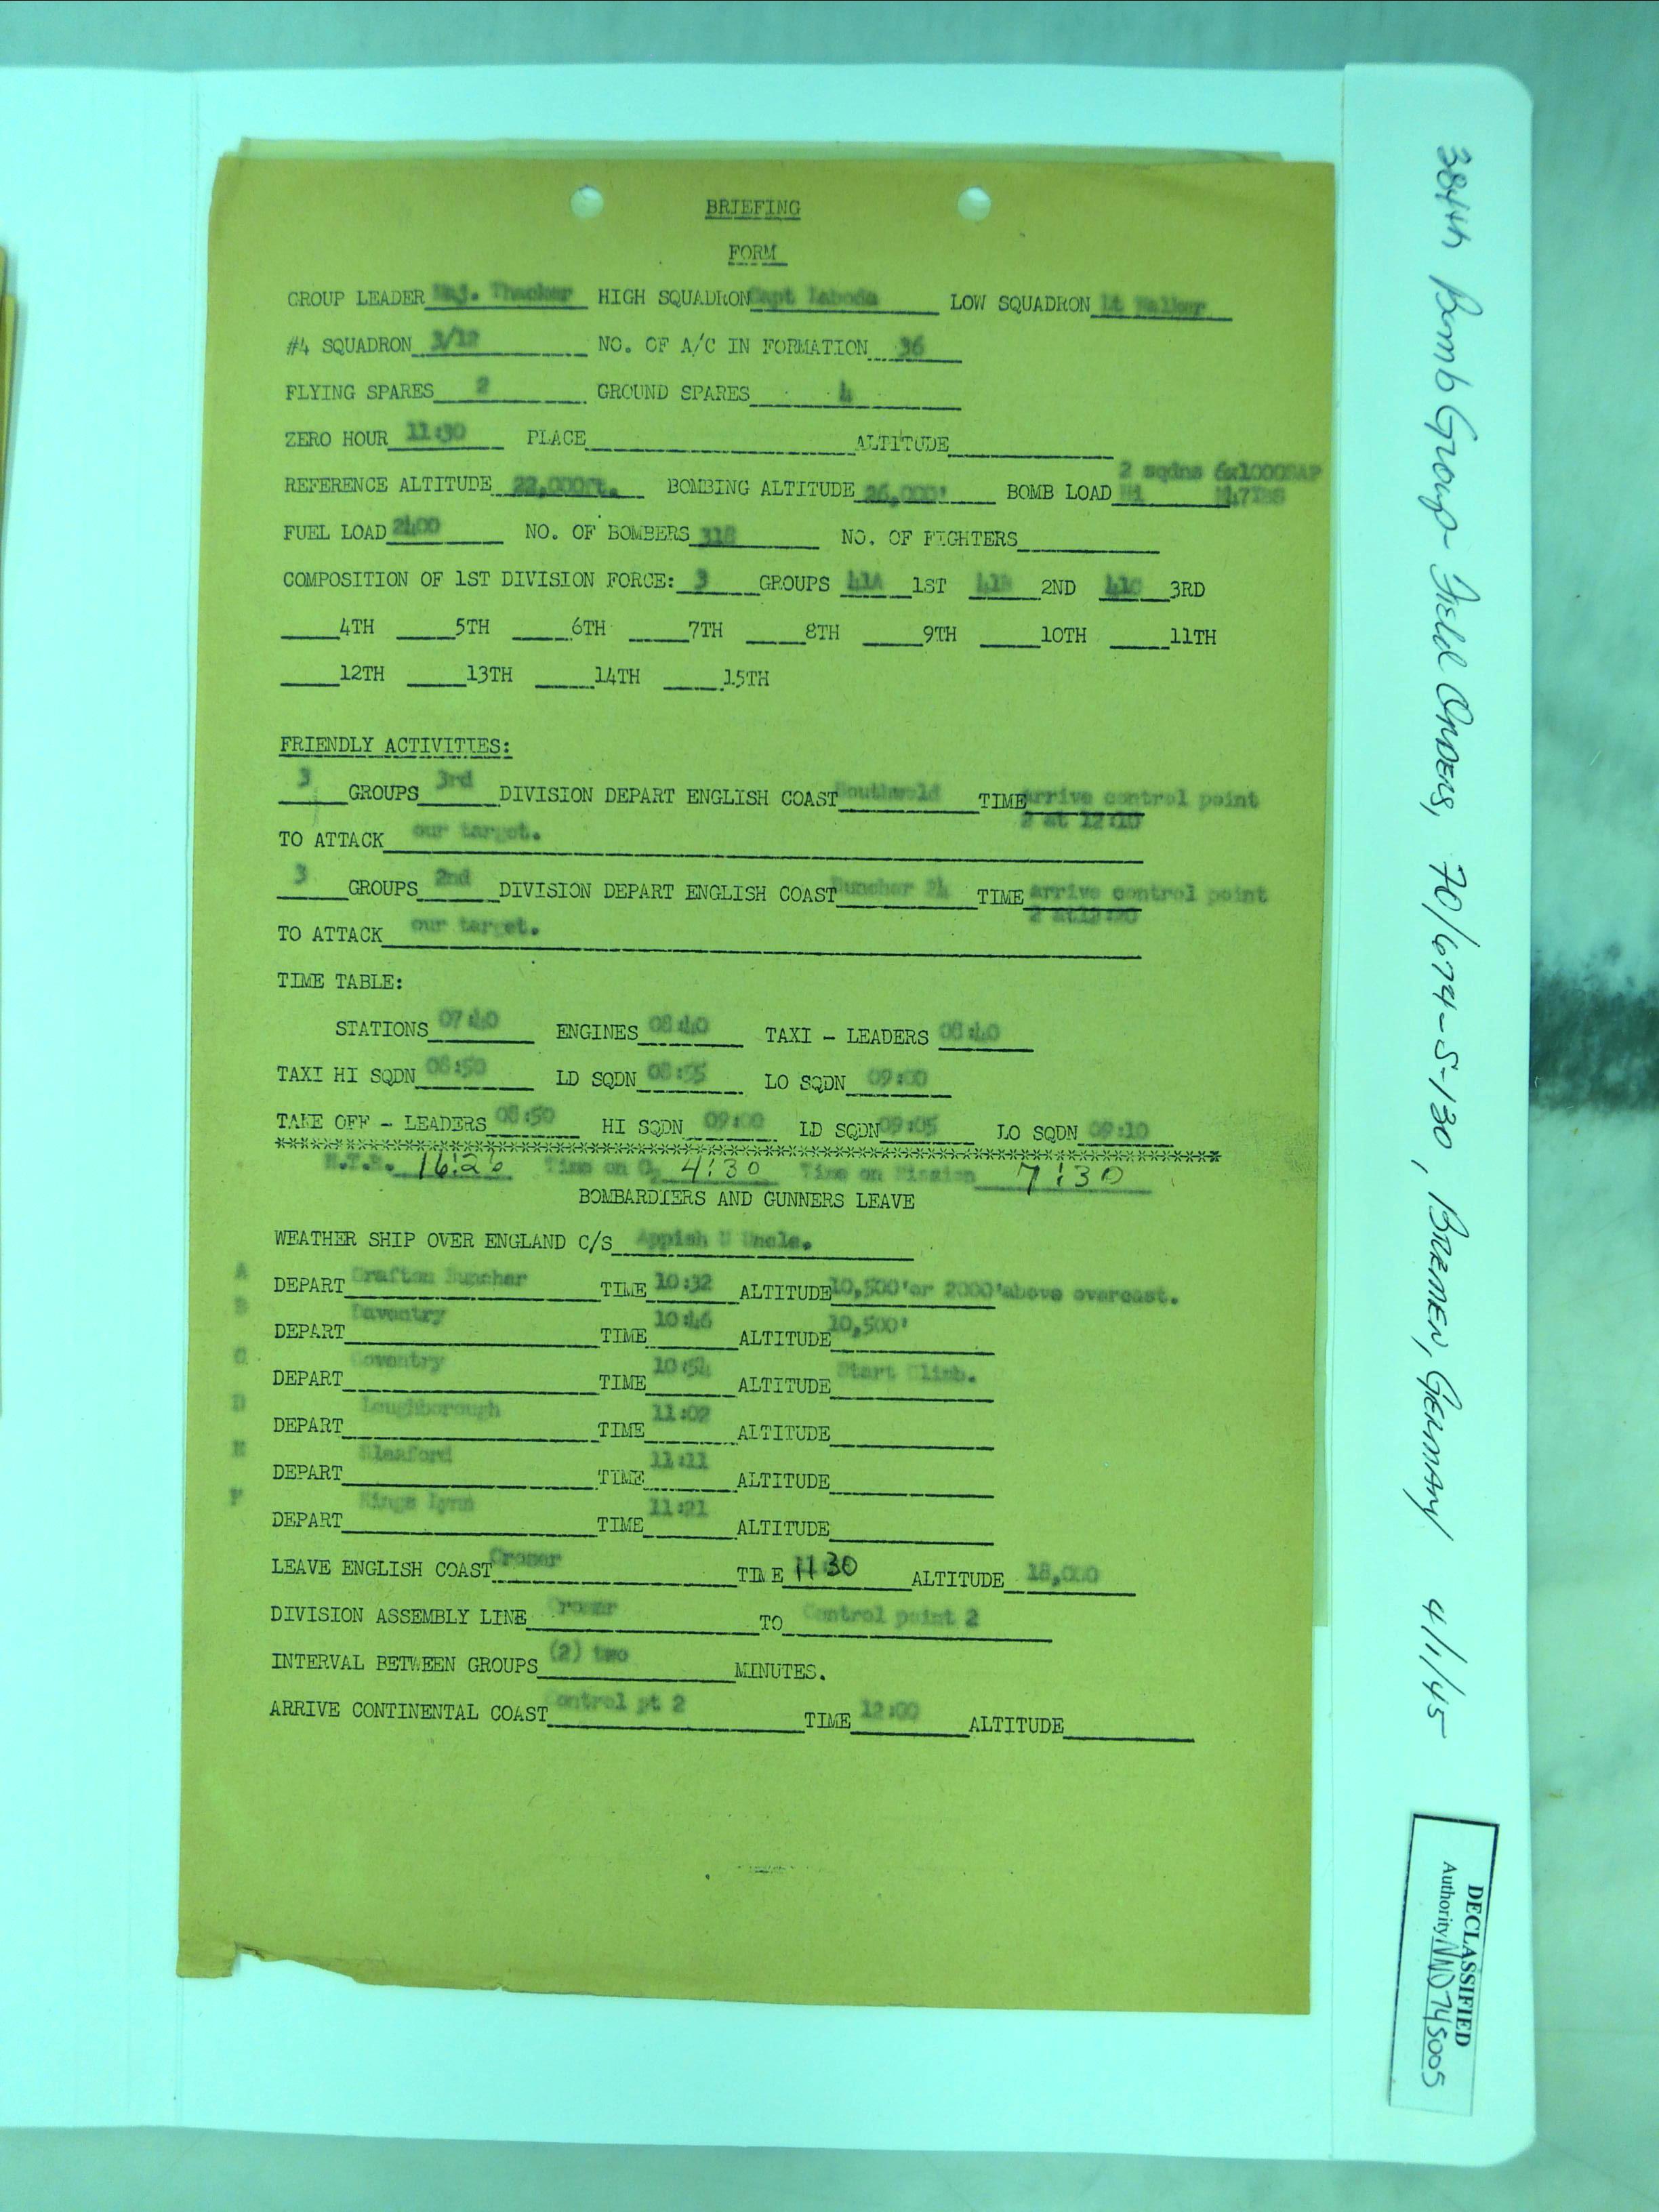 BRIEFING
FORM
GROUP LEADER Maj. Thacker HIGH SQUADRON Capt Laboda LOW SQUADRON Lt Walker
#4 SQUADRON 3/12 NO. OF A/C IN FORMATION 36
FLYING SPARES 2 GROUND SPARES 4
ZERO HOUR 11:30 PLACE ALTITUDE
2 sqdns 6x1000SAP
REFERENCE ALTITUDE 22,000ft. BOMBING ALTITUDE 26,000' BOMB LOAD M47IBS
FUEL LOAD 2400 NO. OF BOMBERS 318 NO. OF FIGHTERS
COMPOSITION OF 1ST DIVISION FORCE: 3 GROUPS 41A 1ST 41B 2ND 41C 3RD
4TH 5TH 6TH 7TH 8TH 9TH 10TH 11TH
12TH 13TH 14TH 15TH
FRIENDLY ACTIVITIES:
3 GROUPS 3rd DIVISION DEPART ENGLISH COAST Southwold TIME arrive control point
2 at 12:10
TO ATTACK our target.
3 GROUPS 2nd DIVISION DEPART ENGLISH COAST Buncher 24 TIME arrive control point
2 at
TO ATTACK our target.
TIME TABLE:
STATIONS 07:40 ENGINES 08:40 TAXI - LEADERS 08:40
TAXI HI SQDN 08:50 LD SQDN 08:55 LO SQDN 09:00
TAKE OFF - LEADERS 08:50 HI SQDN 09:00 LD SQDN 09:05 LO SQDN 09:10
****************************************************************
Time on O2 4:30 Time on Mission 7:30
BOMBARDIERS AND GUNNERS LEAVE
WEATHER SHIP OVER ENGLAND C/S Uncle.
A DEPART Grafton Buncher TIME 10:32 ALTITUDE 10,500'or 2000'above overcast.
B DEPART Daventry TIME 10:46 ALTITUDE 10,500'
C DEPART Coventry TIME 10:54 ALTITUDE Start Climb.
D DEPART Loughborough TIME 11:02 ALTITUDE
E DEPART Sleaford TIME 11:11 ALTITUDE
F DEPART Kings Lynn TIME 11:21 ALTITUDE
LEAVE ENGLISH COAST Cromer TIME 1130 ALTITUDE 18,000
DIVISION ASSEMBLY LINE Cromer TO Control point 2
INTERVAL BETWEEN GROUPS (2) two MINUTES.
ARRIVE CONTINENTAL COAST Control pt 2 TIME 12:00 ALTITUDE
384th Bomb Group - Field Orders, 70/674-S-130, BREMEN, GERMANY 4/1/45
DECLASSIFIED
Authority NND 745005